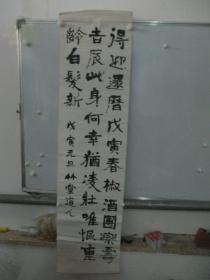 得迎還曆戊寅春椒酒團欒壽
者辰此身何幸猶凌壯唯恨重
齡白髮新 戊寅元旦 堂人